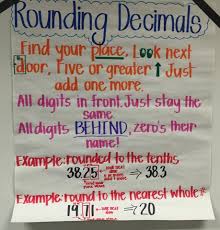 Rounding Decimals
Find your place, Look next
door, Five or greater ↑ Just
add one more.
All digits in front, Just stay the
same
All digits BEHIND, zero's their
name!
Example: rounded to the tenths
38.25 → 38.3
Example: round to the nearest whole #
19.71 → 20